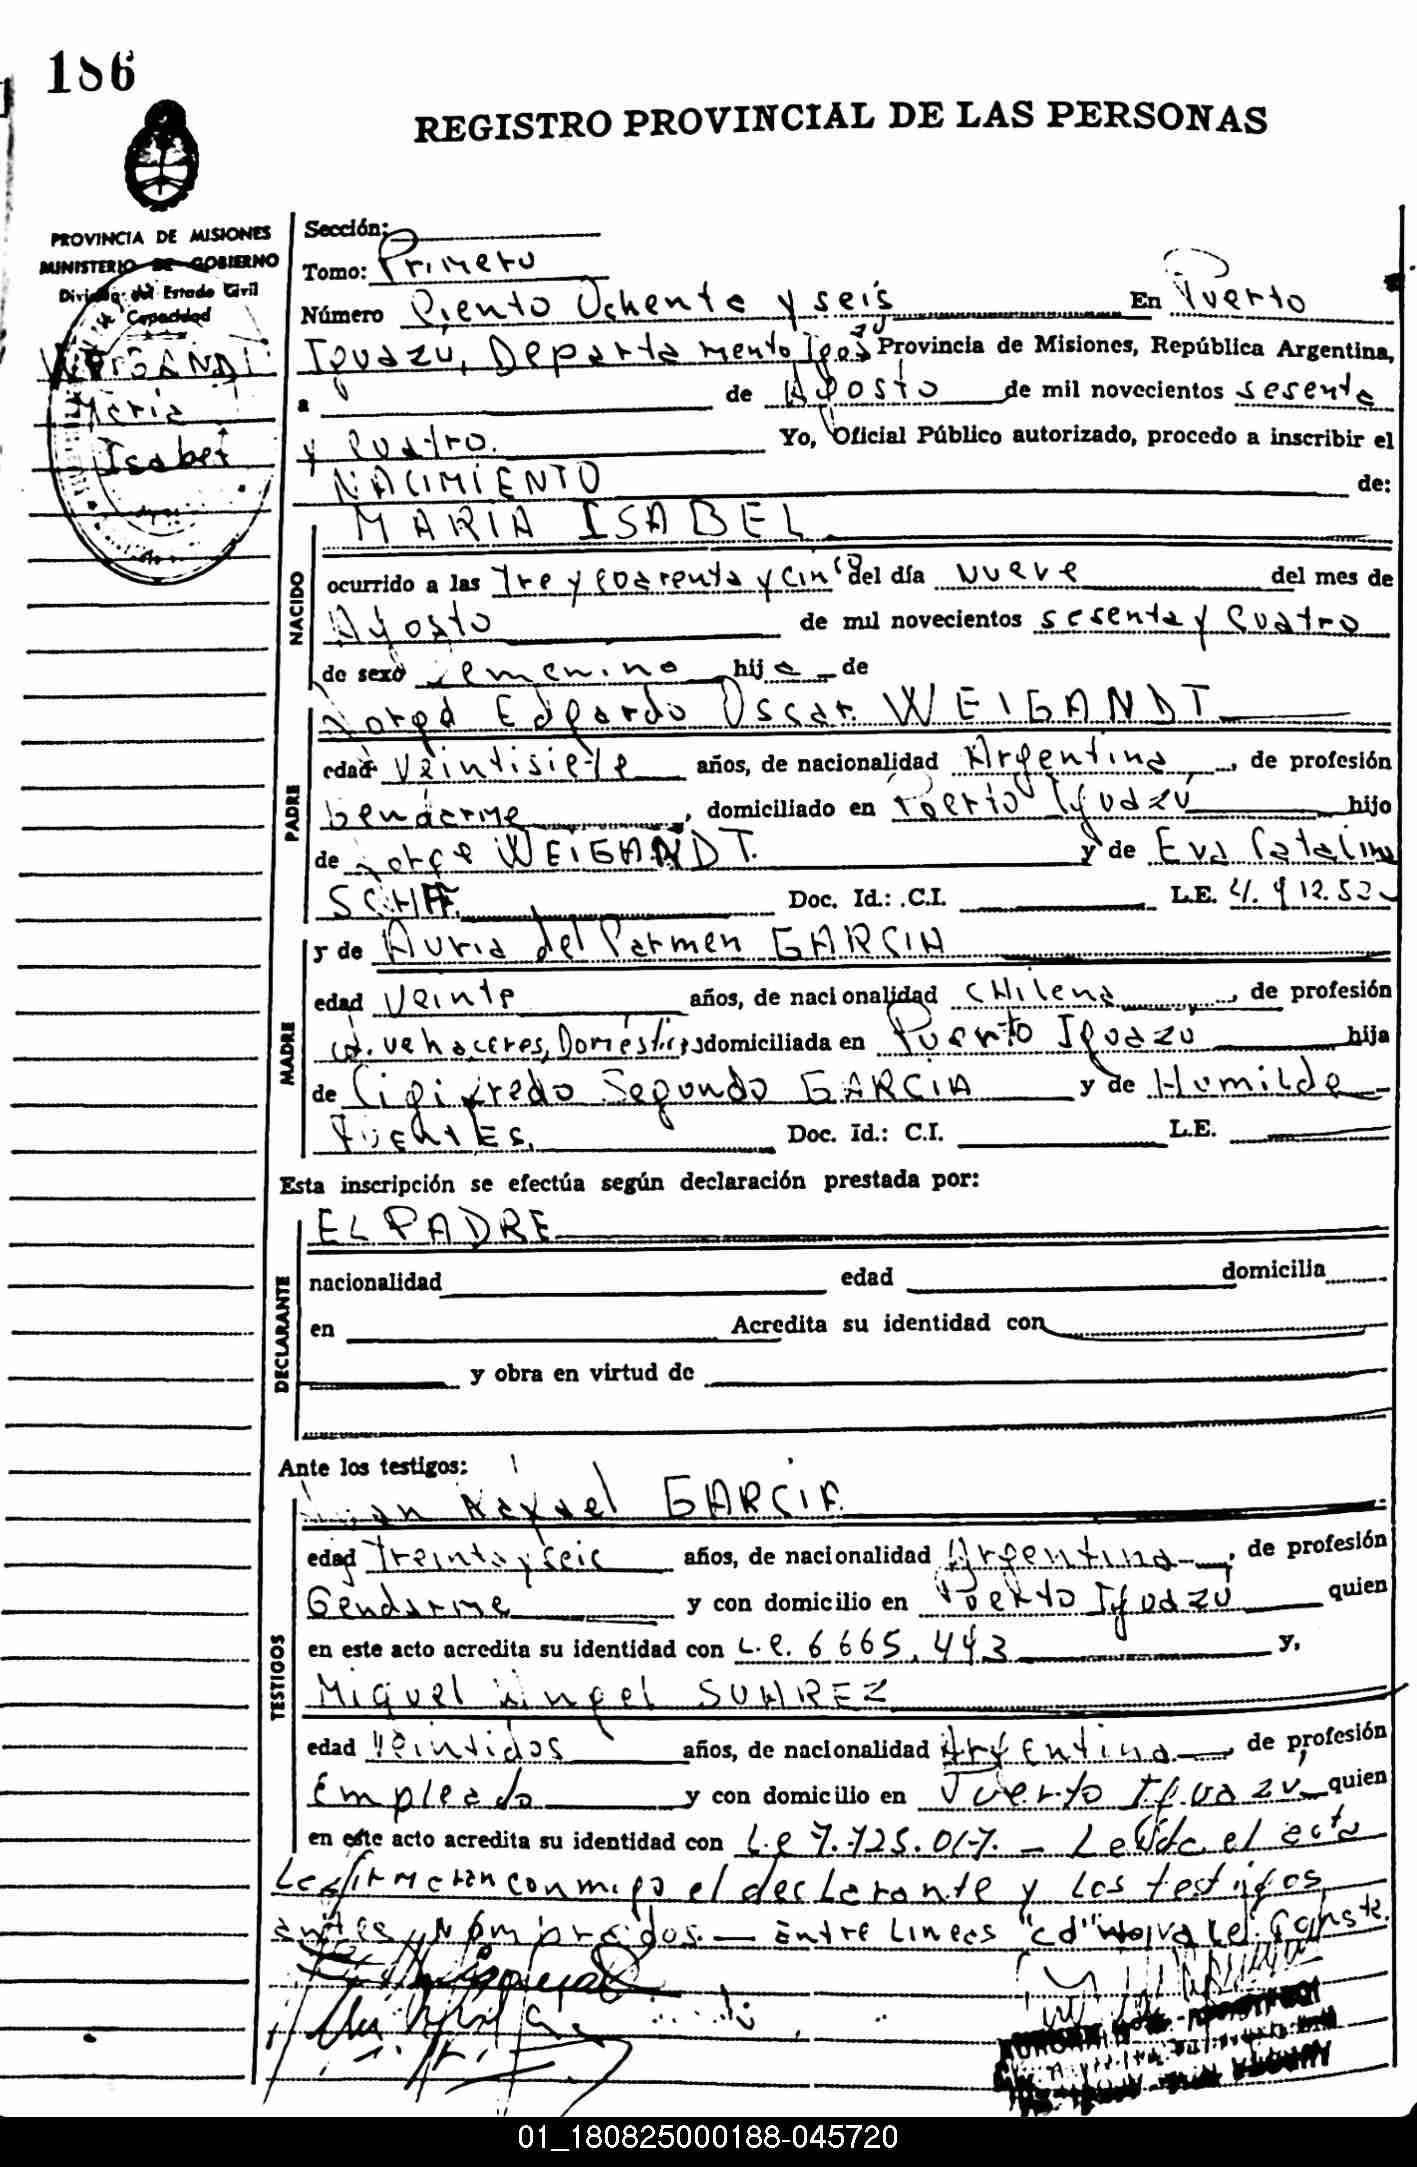 186
REGISTRO PROVINCIAL DE LAS PERSONAS
PROVINCIA DE MISIONES
MINISTERIO DE GOBIERNO
División del Estado Civil
y Capacidad
WEIGANDT
María
Isabel
Sección:
Tomo: Primero
Número Ciento Ochenta y seis En Puerto
Iguazú, Departamento Iguazú Provincia de Misiones, República Argentina,
a de Agosto de mil novecientos sesenta
y cuatro. Yo, Oficial Público autorizado, procedo a inscribir el
NACIMIENTO de:
NACIDO
MARIA ISABEL
ocurrido a las tre y coarenta y cinco del día nueve del mes de
Agosto de mil novecientos sesenta y cuatro
de sexo femenino hija de
PADRE
Jorge Edgardo Oscar WEIGANDT
edad veintisiete años, de nacionalidad Argentina, de profesión
Gendarme, domiciliado en Puerto Iguazú hijo
de Jorge WEIGANDT. y de Eva Catalina
Doc. Id.: C.I. L.E. 4.912.52
MADRE
y de Auria del Carmen GARCIA
edad Veinte años, de nacionalidad CHilena, de profesión
quehaceres, Domésticos domiciliada en Puerto Iguazú hija
de Cigifredo Segundo GARCIA y de Humilde
Fuentes. Doc. Id.: C.I. L.E.
Esta inscripción se efectúa según declaración prestada por:
DECLARANTE
EL PADRE
nacionalidad edad domicilia
en Acredita su identidad con
y obra en virtud de
Ante los testigos:
TESTIGOS
Juan Manuel GARCIA
edad treinta y seis años, de nacionalidad Argentina, de profesión
Gendarme y con domicilio en Puerto Iguazú quien
en este acto acredita su identidad con L.e. 6665.443 y,
Miguel Angel SUAREZ
edad Veintidos años, de nacionalidad Argentina, de profesión
Empleado y con domicilio en Puerto Iguazú quien
en este acto acredita su identidad con L.e 7.725.017. - Leída el acta
la firmaran conmigo el declarante y los testigos
antes nombrados. — Entre Lineas "cd" no vale. Conste.
01_180825000188-045720